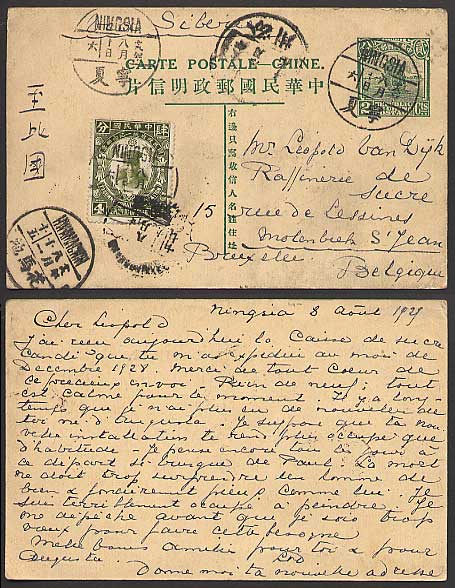 Siberi
CARTE POSTALE – CHINE.
中華民國郵政明信片
NINGSIA
寧夏
NINGSIA
寧夏
至比國
右邊只寫收信人名住址
Mr Leopold Van Dijk
Raffinerie de
Sucre
15 rue de Lessines
Molenbeek St Jean
Bruxelles
Belgique
Ningsia 8 Août 1929
Cher Leopold
J'ai reçu aujourd'hui la Caisse de sucre
candi que tu m'as expédié au mois de
Decembre 1928. Merci de tout coeur de
ce précieux envoi. Rien de neuf; tout
est calme pour le moment. Il y a long-
temps que je n'ai plus eu de nouvelles de
toi ni d'Augusta. Je suppose que ta nou-
velle installation te rend plus occupé que
d'habitude. Je pense encore tous les jours à
ce départ si brusque de Paul: La mort
ne doit trop surprendre un homme de
bien & foncièrement pieux comme lui. Je
suis terriblement occupé à peindre. Je
me dépêche avant que je sois trop
vieux pour faire cette besogne
Meilleures amitiés pour toi & pour
Augusta
Donne moi ta nouvelle adresse